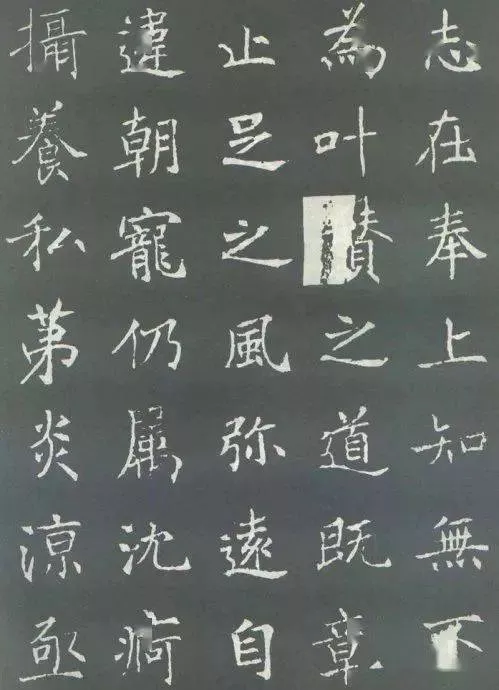 志在奉上知無不
為叶賛之道既章
止足之風弥遠自
違朝寵仍属沈痾
攝養私第炎涼亟